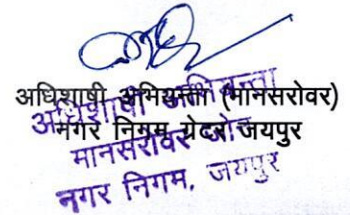 अधिशाषी अभियन्ता (मानसरोवर)
नगर निगम ग्रेटर जयपुर
अधिशाषी अभियन्ता
मानसरोवर जोन
नगर निगम, जयपुर